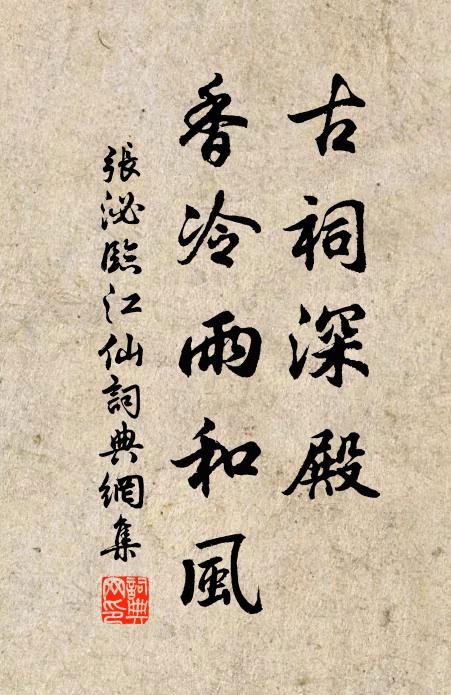 古祠深殿
香冷雨和風
張泌臨江仙詞典網集
詞典網印